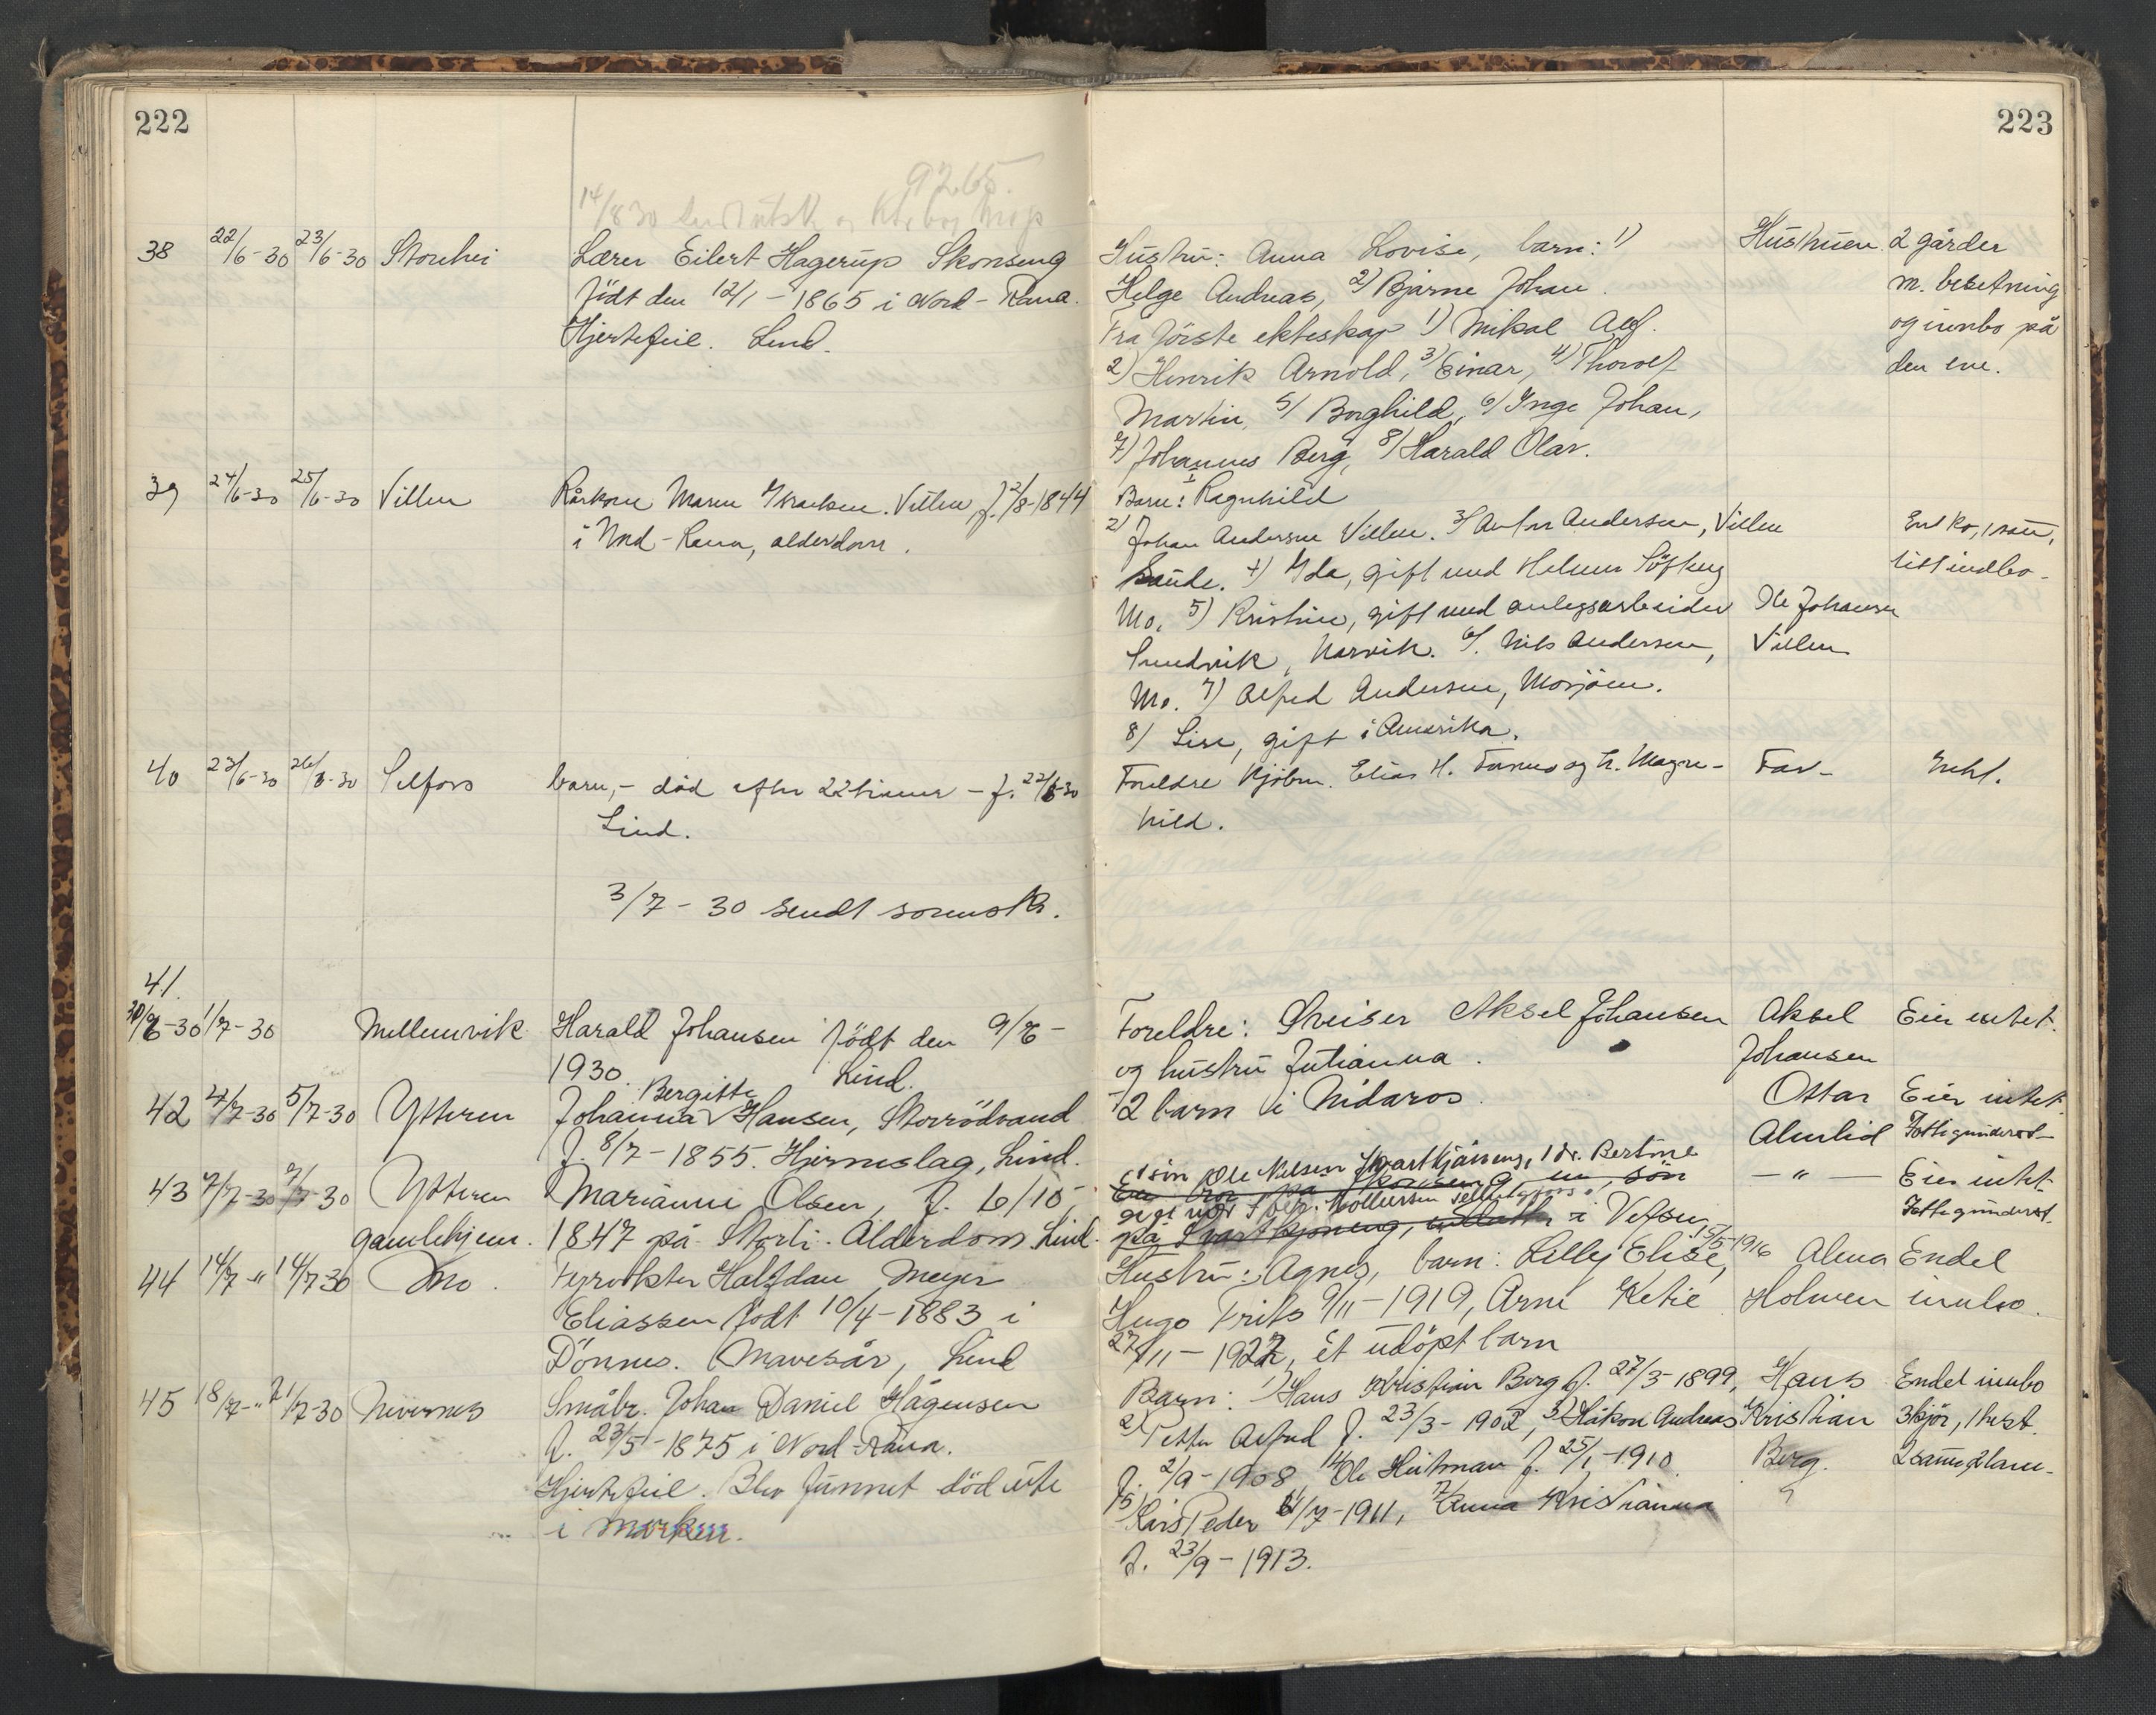 222
9265.
14/8 30
38 22/6-30 23/6-30 Storhei Lærer Eilert Hagerup Skonseng
Födt den 12/1-1865 i Nord-Rana.
Hjertefeil. Lind.
39 24/6-30 25/6-30 Villen Kårkone Maren Villen, f. 2/8-1844
i Nord-Rana, alderdom.
40 23/6-30 26/6-30 Selfors barn,- död efter 22 timer - f. 22/6-30
Lind.
3/7-30 sendt sorenskr.
41.
30/6-30 1/7-30 Mellemvik Harald Johansen födt den 9/6-
1930. Lind.
Bergitte
42 4/7-30 5/7-30 Ytteren Johanna Hansen, Storrödvand
f. 8/7-1855. Hjerneslag, Lind.
43 7/7-30 7/7-30 Ytteren Marianne Olsen, f. 6/10-
gamlehjem. 1847 på Storli. Alderdom Lind.
44 14/7-" 14/7-30 Mo. Fyrvokter Halfdan Meyer
Eliassen födt 10/4-1883 i
Dönnes. Mavesår, Lind
45 18/7-" 21/7-30 Nivernes Småbr. Johan Daniel Hågensen
f. 23/5-1875 i Nord-Rana.
Hjertefeil. Blev funnet död ute
i marken.
223
Hustru: Anna Lovise, barn: 1) Hustruen 2 gårder
Helge Andreas, 2) Bjarne Johan. m. besetning
Fra förste ekteskap 1) Mikal Alf. og innbo på
2) Henrik Arnold, 3) Einar, 4) Thorolf den ene.
Martin, 5) Borghild, 6) Inge Johan,
7) Johannes Berg, 8) Harald Olav.
Barn: 1 Ragnhild
2) Johan Andersen Villen. 3) Andersen, Villen En ko, 1 sau,
4) Ida, gift med Helmer litt indbo.
Mo. 5) Kristine, gift med anlegsarbeider Ole Johansen
Sundvik, Narvik. 6) Nils Andersen, Villen
Mo. 7) Alfred Andersen, Mosjöen.
8) Lise, gift i Amerika.
Foreldre Kjöbm. Elias H. og h. Magn- Far- Intet.
hild.
Foreldre: Sveiser Aksel Johansen Aksel Eier intet.
og hustru Julianna. Johansen
2 barn i Nidaros. Ottar Eier intet.
Almlid Fattigunderst.
1 sön Ole Nilsen Svartkjönneng, 1 d. Bertine
en sön -"- Eier intet
gift med Fattigunderst.
på Svartkjöneng, i Vefsn
Hustru: Agnes, barn: Lilly Elise, 15/5-1916 Alma Endel
Hugo Frits 9/11-1919, Arne Ketie Holmen innbo.
27/11-1922, et udöpt barn
Barn: 1) Hans Kristian Berg f. 27/3-1899, Hans Endel innbo
2) Petter Alfred f. 23/3-1902, 3) Håkon Andreas Kristian 3 kjör, 1 hest.
f. 2/9-1908 4) Ole Heitman f. 25/1-1910 Berg. 2 sauer, 2 lam.
5) Peder /7-1911, Anna Kristianna
f. 23/9-1913.